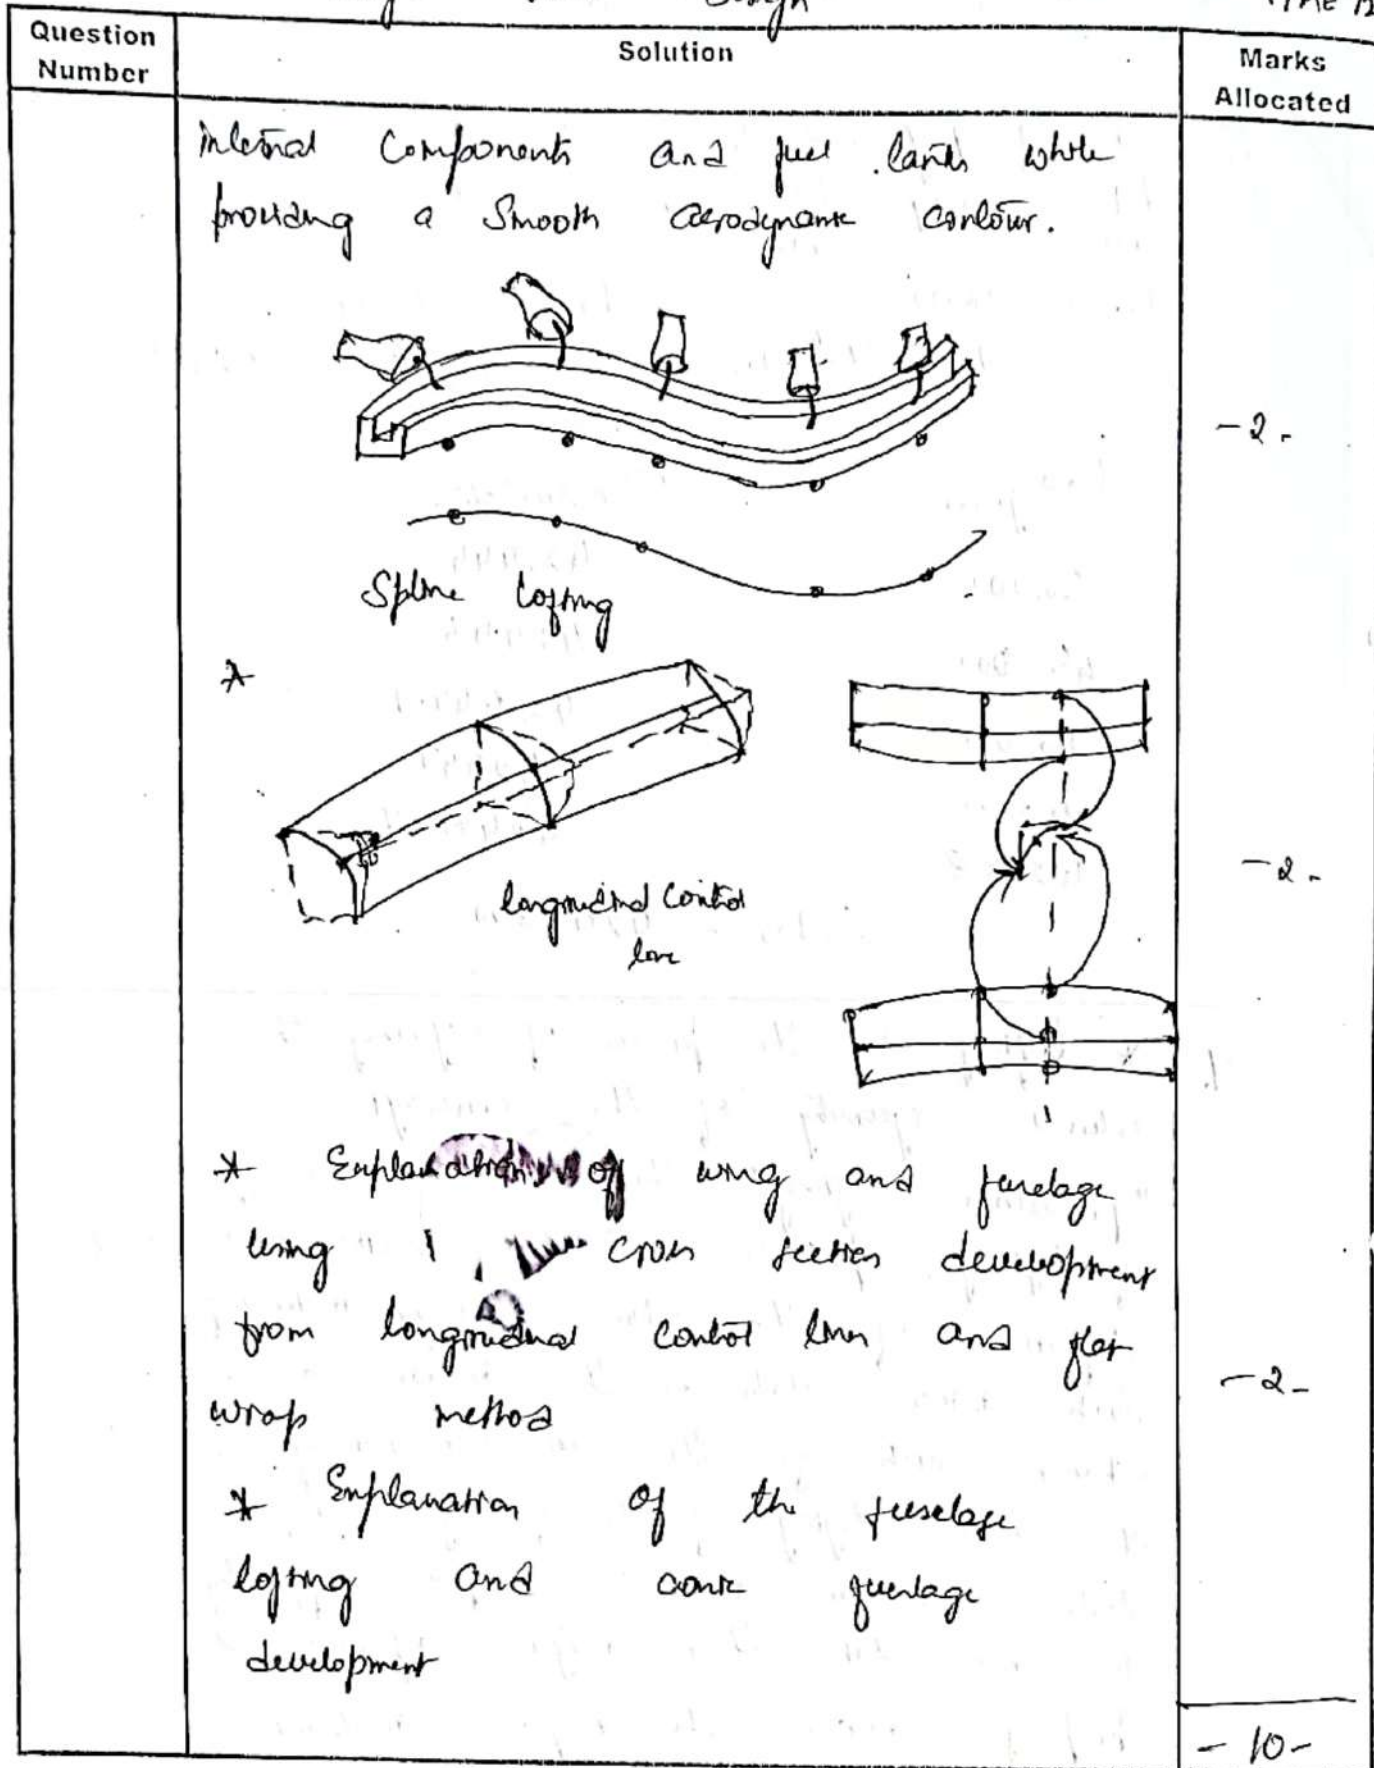 Design
Question Number
Solution
Marks Allocated
internal Components and fuel tanks while
providing a Smooth aerodynamic contour.
-2-
Spline lofting
*
longitudinal Control
line
-2-
* Explanation of wing and fuselage
using cross section development
from longitudinal control lines and flat
wrap method
-2-
* Explanation of the fuselage
lofting and conic fuselage
development
-10-